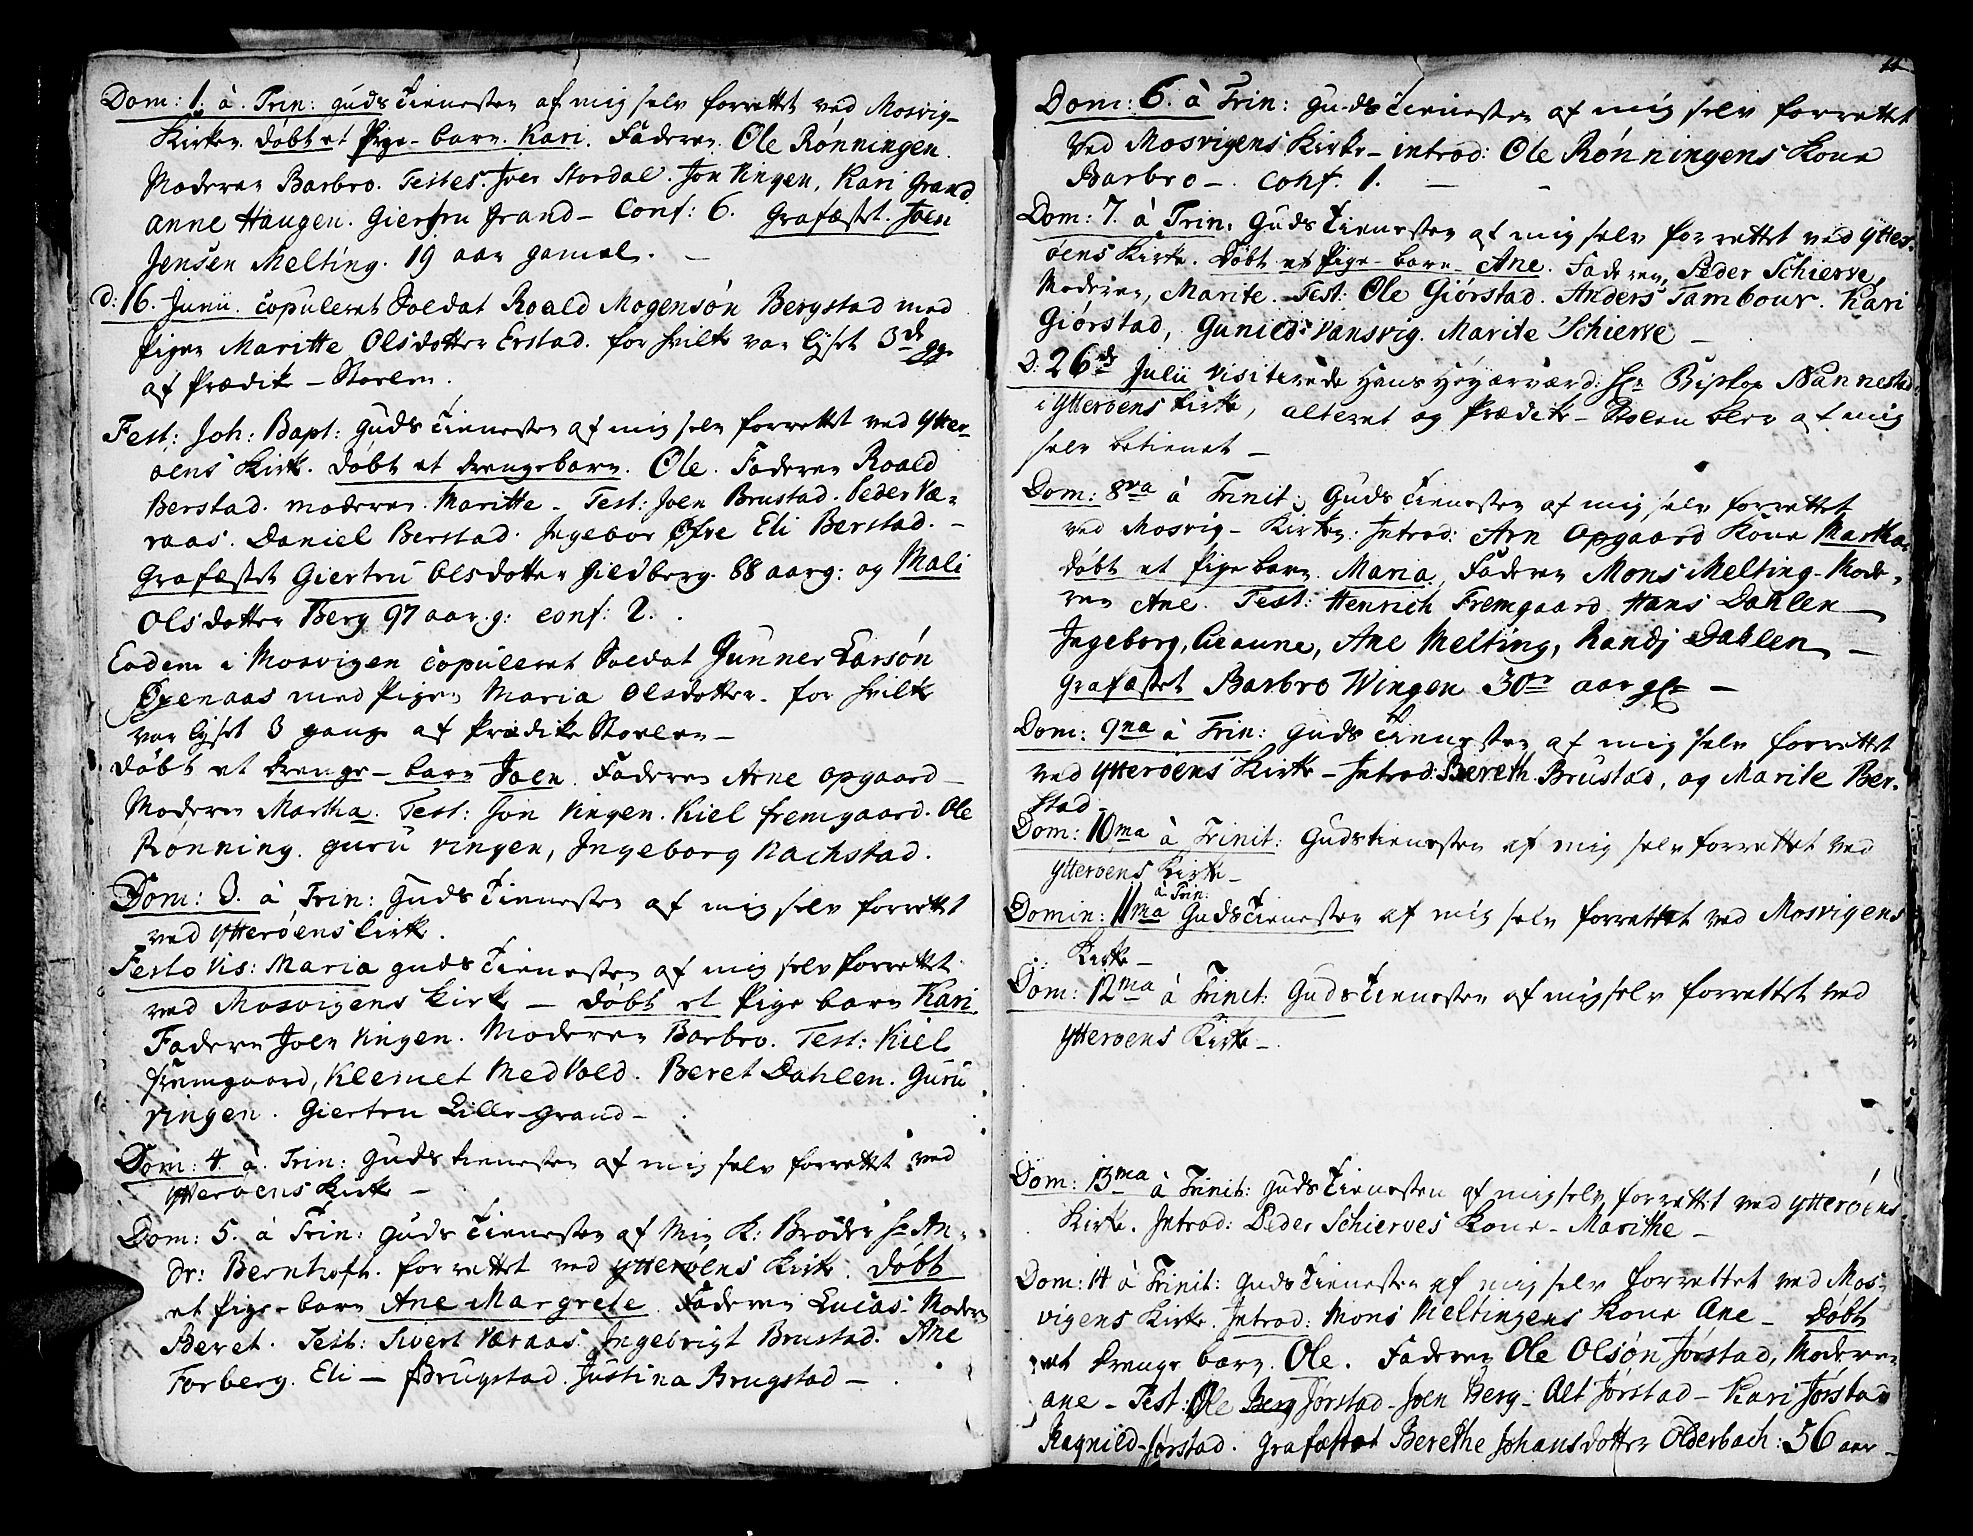 Dom: 1. à Trin: guds Tienesten af mig selv forrettet ved Mosvig-
Kirken. døbt et Pige-barn. Kari. Faderen Ole Rønningen.
Moderen Barbro. Testes. Iver Nordal. Jon Vingen, Kari Grand
Anne Haugen. Giertru Grand - Conf: 6. Grafæstet. Joen
Jensen Melting. 19 aar gamel. -
d: 16. Junii. copuleret Soldat Roald Mogensøn Bergstad med
Pigen Maritte Olsdotter Erstad. for hvilke var lyset 3de gge
af Prædike-Stoelen.
Fest: Joh: Bapt: Guds Tienesten af mig selv forrettet ved Ytter-
øens Kirke. døbt et drengebarn. Ole. Faderen Roald
Berstad. moderen Maritte - Test: Joen Brustad. Peder Væ-
raas. Daniel Berstad. Ingebor Øfre Eli Berstad. -
Grafæstet Giertru Olsdotter Hildberg. 88 aar g: og Mali
Olsdotter Berg 97 aar. g: conf: 2.
Eodem i Mosvigen copuleret Soldat Gunner Larsøn
Øyenaas med Pigen Maria Olsdotter. for hvilke
var lyset 3 gange af Prædike Stoelen -
døbt et drenge-barn Joen. Faderen Arne Opgaard -
Moderen Martha. Test: Jon Vingen. Kiel fremgaard. Ole
Rønning. Guru Vingen, Ingeborg Nachstad.
Dom: 3. à Trin: Guds Tienesten af mig selv forrettet
ved Ytterøens Kirke.
Festo Vis: Maria guds Tienesten af mig selv forrettet
ved Mosvigens Kirke - døbt et Pige barn Kari.
Faderen Joen Vingen. Moderen Barbro. Test: Kiel
fremgaard, Klemet Medvold. Beret Dahlen. Guru
Vingen. Giertru Lille-grand -
Dom: 4. à. Trin: Guds tienesten af mig selv forrettet ved
Ytterøens Kirke -
Dom: 5. à Trin: guds Tienesten af Min K: Broder Hr An-
dr: Bernhoft. forrettet ved Ytterøens Kirke. døbt
et Pige-barn Ane Margrete. Faderen Lucas. Moderen
Beret. Test: Sivert Væraas. Ingebrigt Brustad. Ane
Forberg. Eli - Brugstad. Justina Brugstad -
Dom: 6. à Trin: Guds Tienesten af mig selv forrettet
ved Mosvigens Kirke - introd: Ole Rønningens Kone
Barbro -. Conf. 1. - -
Dom: 7. à Trin. Guds Tienesten af mig selv forrettet ved Ytter-
øens Kirke. døbt et Pige-barn Ane. Faderen, Peder Schierve,
Moderen, Marite. Test: Ole Giørstad. Anders Tambour. Kari
Giørstad, Gunild Vansvig. Marite Schierve -
D. 26de Julii visiterede Hans Høyærværd: Hr Biskop Nannestad
i Ytterøens Kirke, alteret og Prædike-Stolen blev af mig
selv betienet -
Dom: 8va à Trinit: Guds Tienesten af mig selv forrettet
ved Mosvig-Kirken. Introd: Arn Opgaard Kone Martha,
døbt et Pige barn. Maria. Faderen Mons Melting. Mode-
ren Ane. Test: Henrich Fremgaard. Hans Dahlen -
Ingeborg Aune, Ane Melting, Randj Dahlen -
Grafæstet Barbro Wingen 30te aar gl: -
Dom: 9na à Trin: guds Tienesten af mig selv forrettet
ved Ytterøens Kirke - Introd: Bereth Brustad, og Marite Ber-
stad -
Dom: 10ma à Trinit: Gudstienesten af mig selv forrettet ved
Ytterøens Kirke -
Domin: 11ma à Trin: Guds Tienesten af mig selv forrettet ved Mosvigens
Kirke -
Dom: 12ma à Trinit: Guds Tienesten af mig selv forrettet ved
Ytterøens Kirke -.
Dom: 13ma à Trinit: guds Tienesten af mig selv forrettet ved Ytterøens
Kirke. Introd: Peder Schierves Kone - Marithe -
Dom: 14 à Trinit: guds Tienesten af mig selv forrettet ved Mos-
vigens Kirke. Introd: Mons Meltingens Kone Ane - Døbt
et drenge barn. Ole. Faderen Ole Olsøn Jørstad, Moderen
ane - Test: Ole Berg Jørstad - Joen Berg - Alt Jørstad - Kari Jørstad
Ragnild Jørstad. Grafæstet Berethe Johansdotter Olderbach: 56 aar -